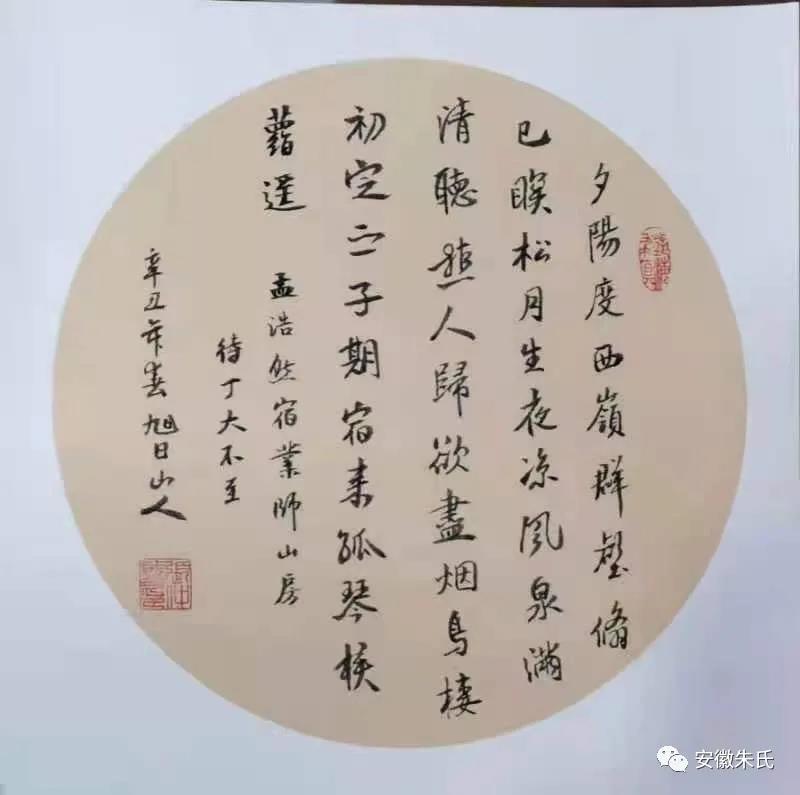 夕陽度西嶺群壑倏
已暝松月生夜凉風泉滿
清聽樵人歸欲盡烟鳥棲
初定之子期宿来孤琴候
蘿逕 孟浩然宿業師山房
待丁大不至
辛丑年春旭日山人
安徽朱氏